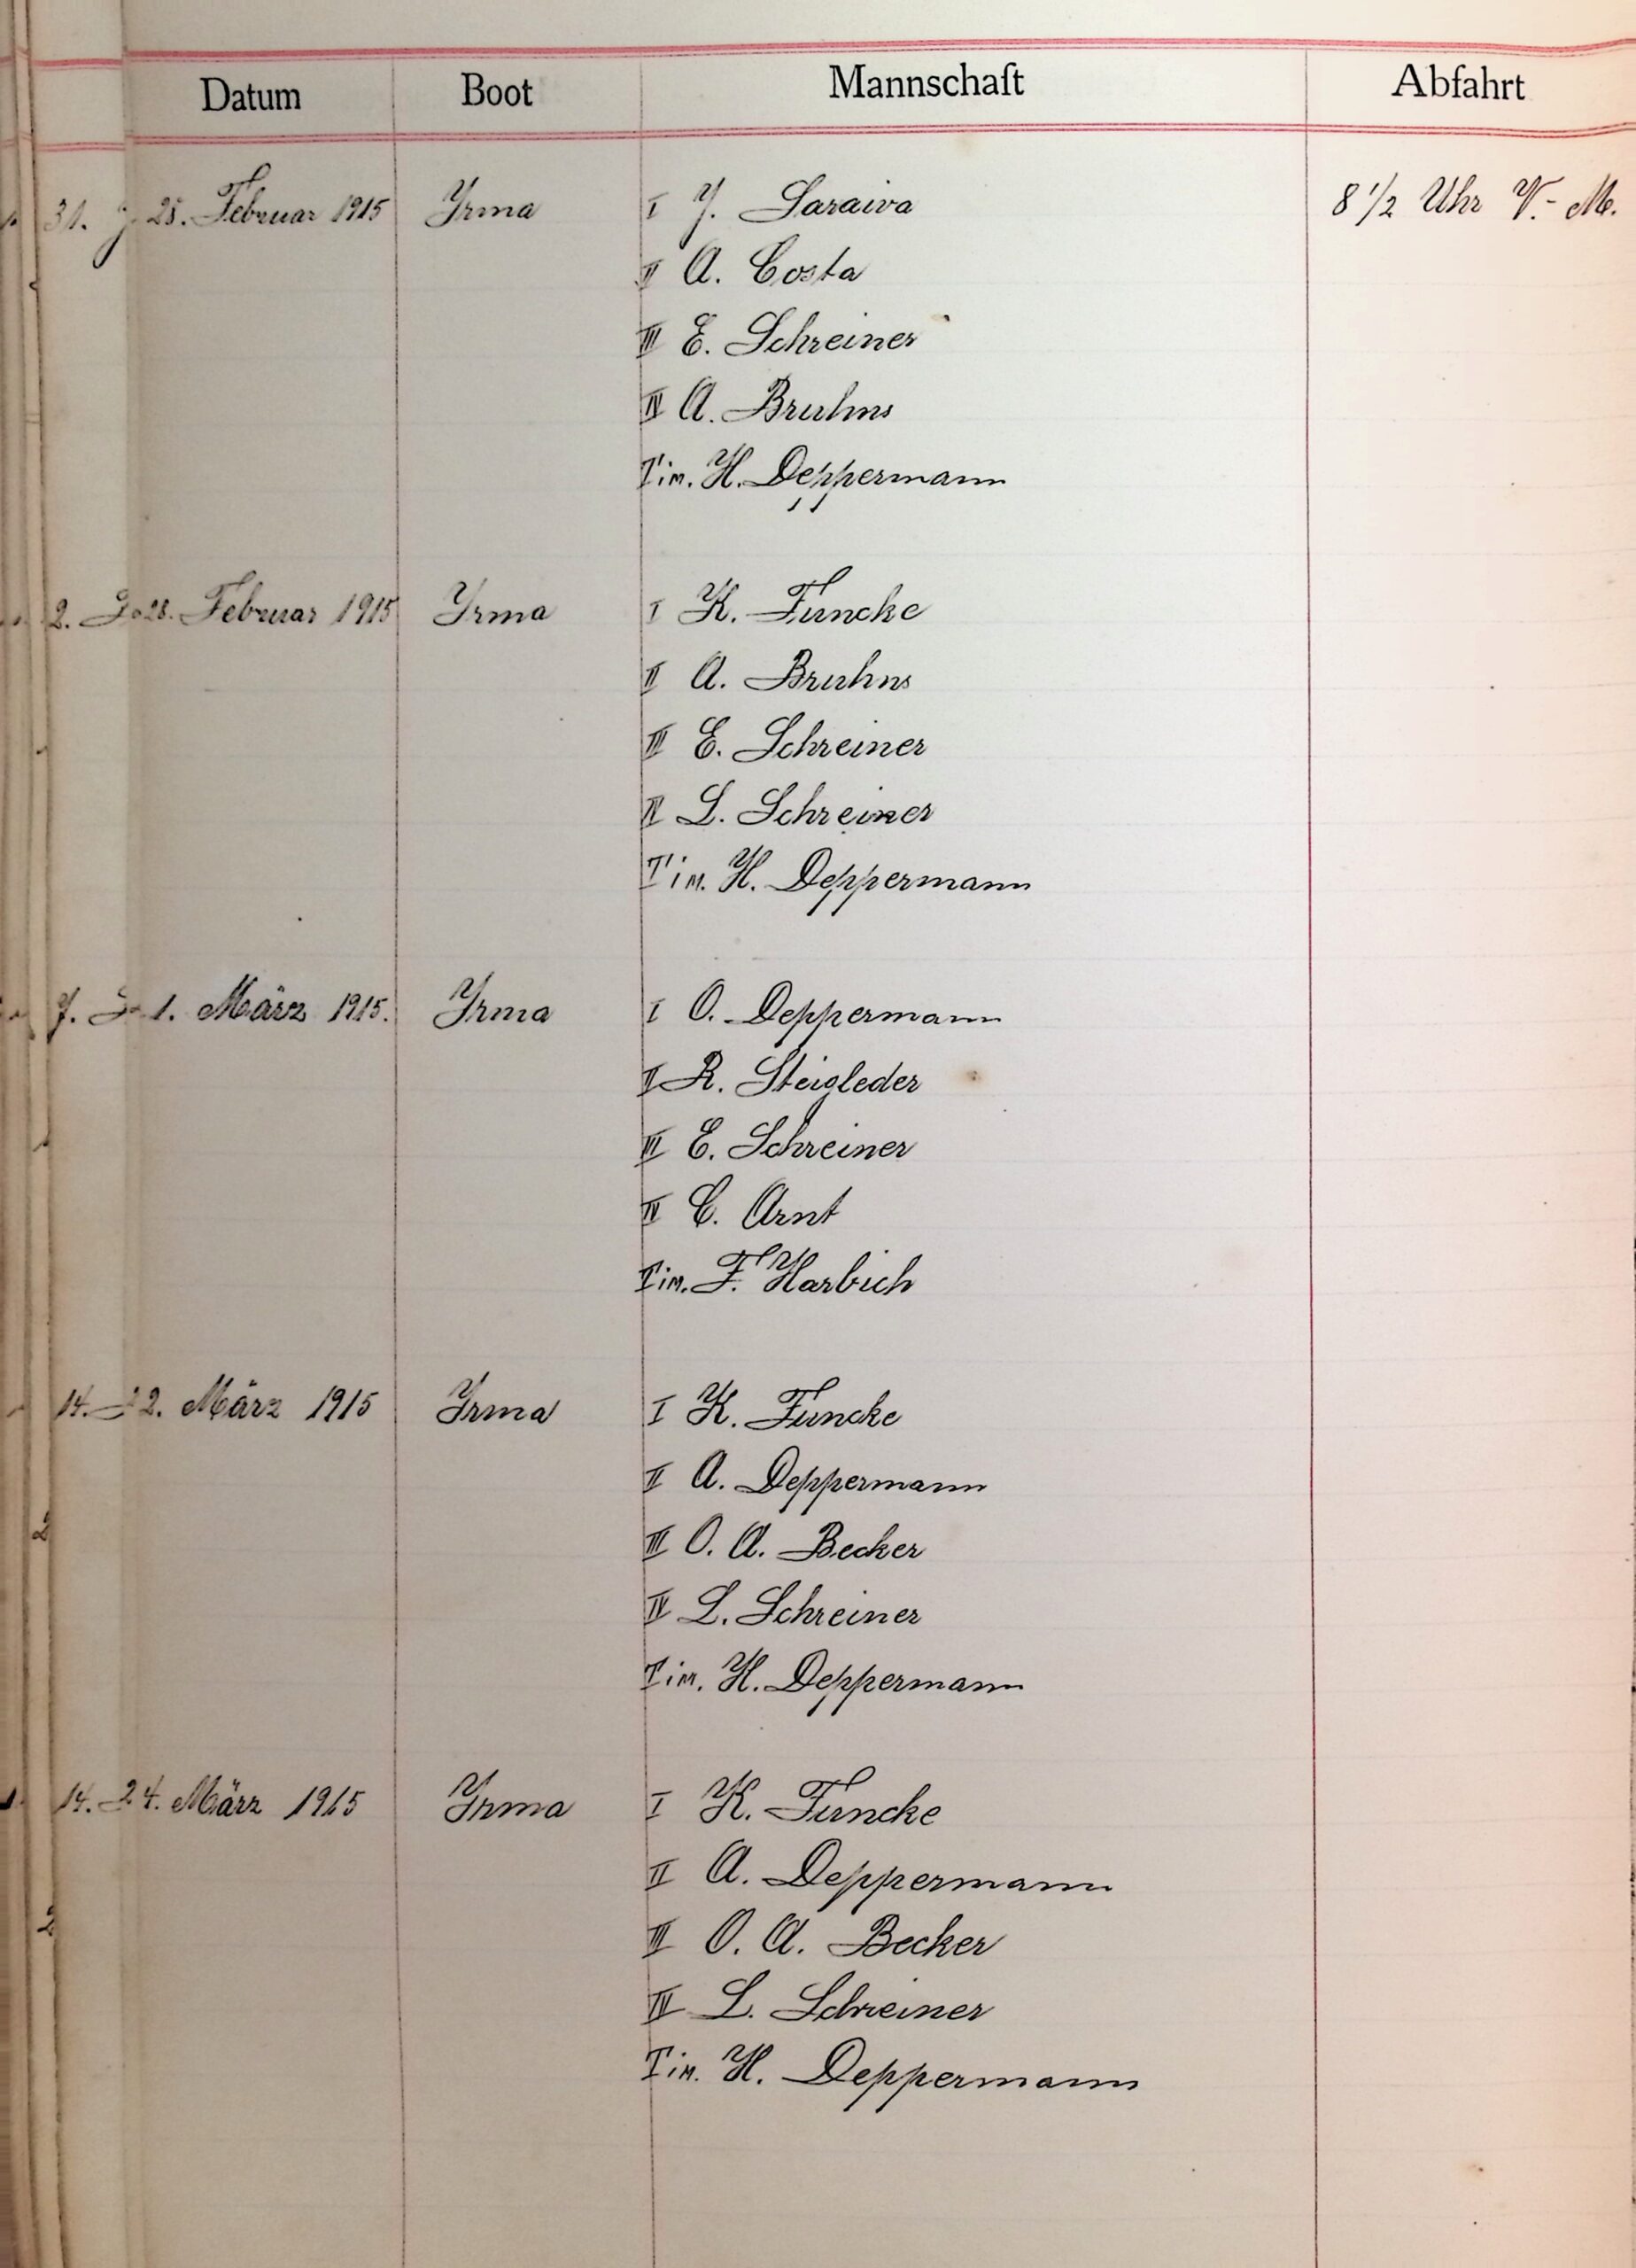 Datum Boot Mannschaft Abfahrt
31. 28. Februar 1915 Yrma I J. Saraiva 8 1/2 Uhr V.-M.
II A. Costa
III E. Schreiner
IV A. Bruhns
Tim. H. Deppermann
2. 28. Februar 1915 Yrma I K. Funcke
II A. Bruhns
III E. Schreiner
IV L. Schreiner
Tim. H. Deppermann
7. 1. März 1915. Yrma I O. Deppermann
II R. Steigleder
III E. Schreiner
IV C. Arnt
Tim. F. Harbich
14. 2. März 1915 Yrma I K. Funcke
II A. Deppermann
III O. A. Becker
IV L. Schreiner
Tim. H. Deppermann
14. 4. März 1915 Yrma I K. Funcke
II A. Deppermann
III O. A. Becker
IV L. Schreiner
Tim. H. Deppermann